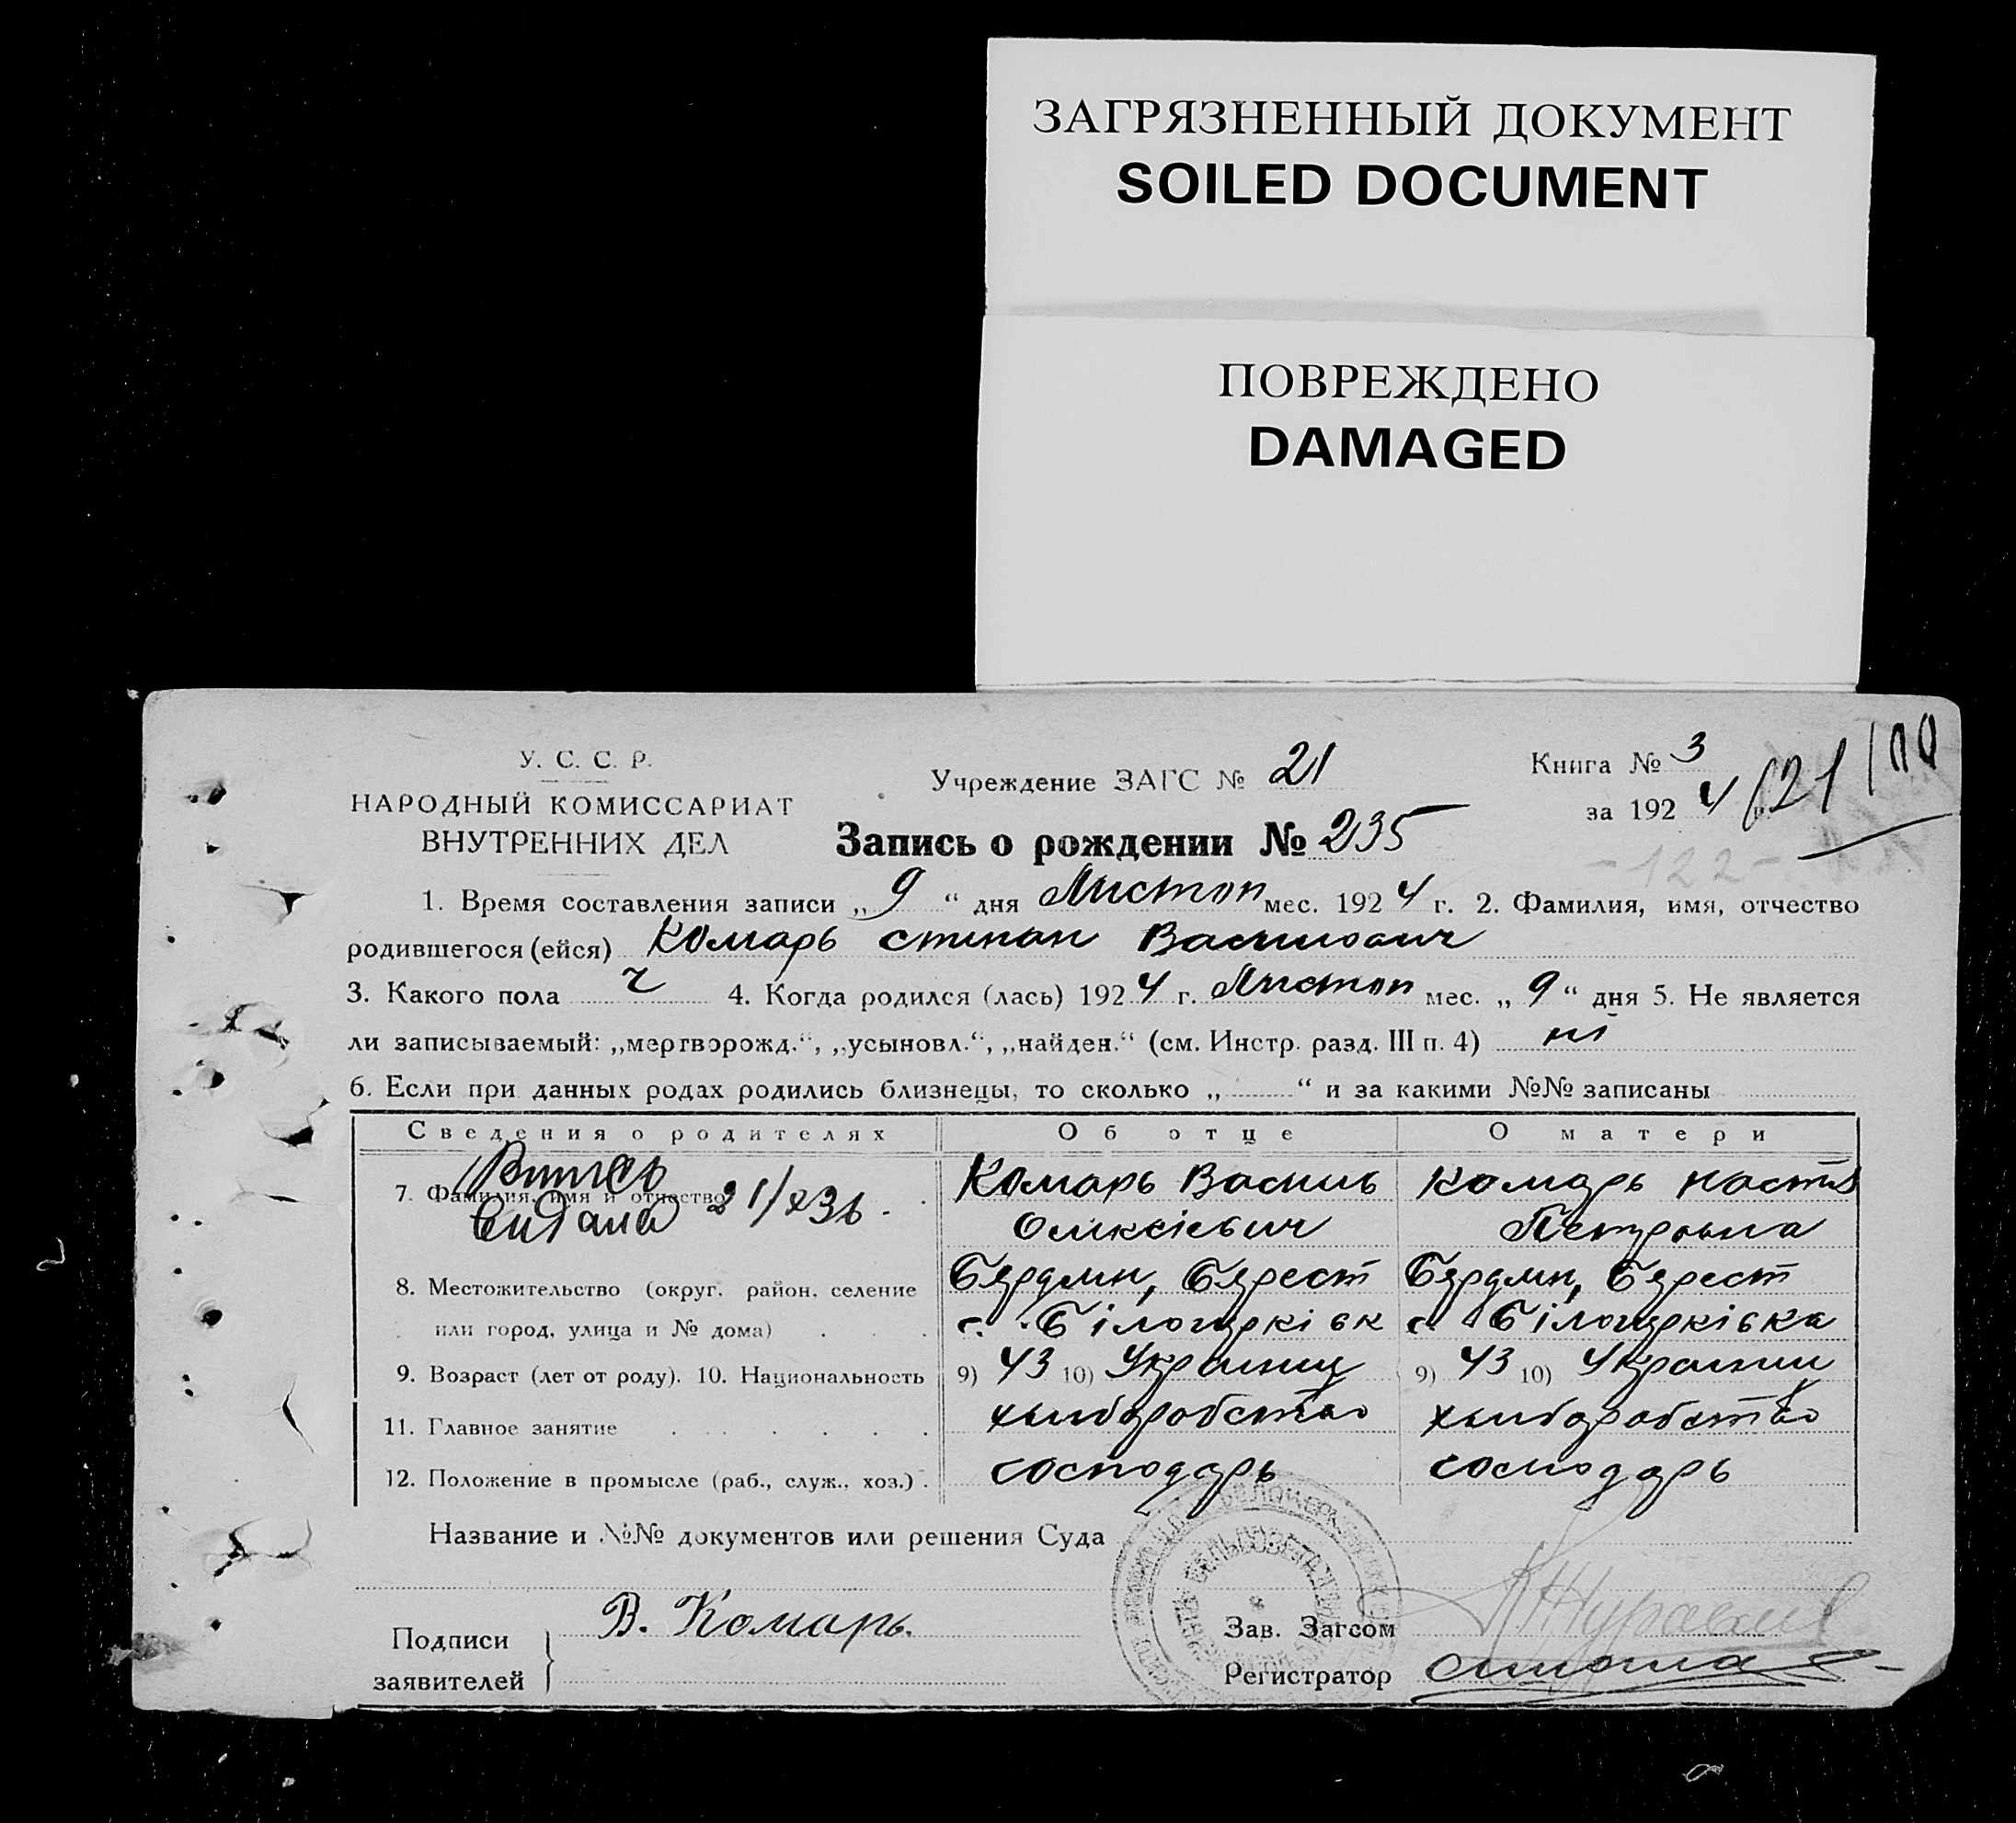 ЗАГРЯЗНЕННЫЙ ДОКУМЕНТ
SOILED DOCUMENT
ПОВРЕЖДЕНО
DAMAGED
У. С. С. Р.
НАРОДНЫЙ КОМИССАРИАТ
ВНУТРЕННИХ ДЕЛ
Учреждение ЗАГС № 21
Книга № 3
за 192 4
Запись о рождении № 235
-122-
1. Время составления записи „ 9 “ дня Листоп мес. 192 4 г. 2. Фамилия, имя, отчество
родившегося (ейся) Комарь Степан Васильович
3. Какого пола ч 4. Когда родился (лась) 192 4 г. Листоп мес. „ 9 “ дня 5. Не является
ли записываемый: „мертворожд.“, „усыновл.“, „найден.“ (см. Инстр. разд. III п. 4) ні
6. Если при данных родах родились близнецы, то сколько „ “ и за какими №№ записаны
Сведения о родителях Об отце О матери
7. Фамилия, имя и отчество Комарь Василь Комарь Настя
Олексієвич Петровна
8. Местожительство (округ, район, селение Бердян, Берест Бердян, Берест
или город, улица и № дома) с. Білоцерківк с. Білоцерківка
9. Возраст (лет от роду). 10. Национальность 9) 43 10) Украинц 9) 43 10) Украинц
11. Главное занятие хлиборобство хлиборобство
12. Положение в промысле (раб., служ., хоз.) господарь господарь
Название и №№ документов или решения Суда
Подписи
заявителей
В. Комарь.
Зав. Загсом
Регистратор